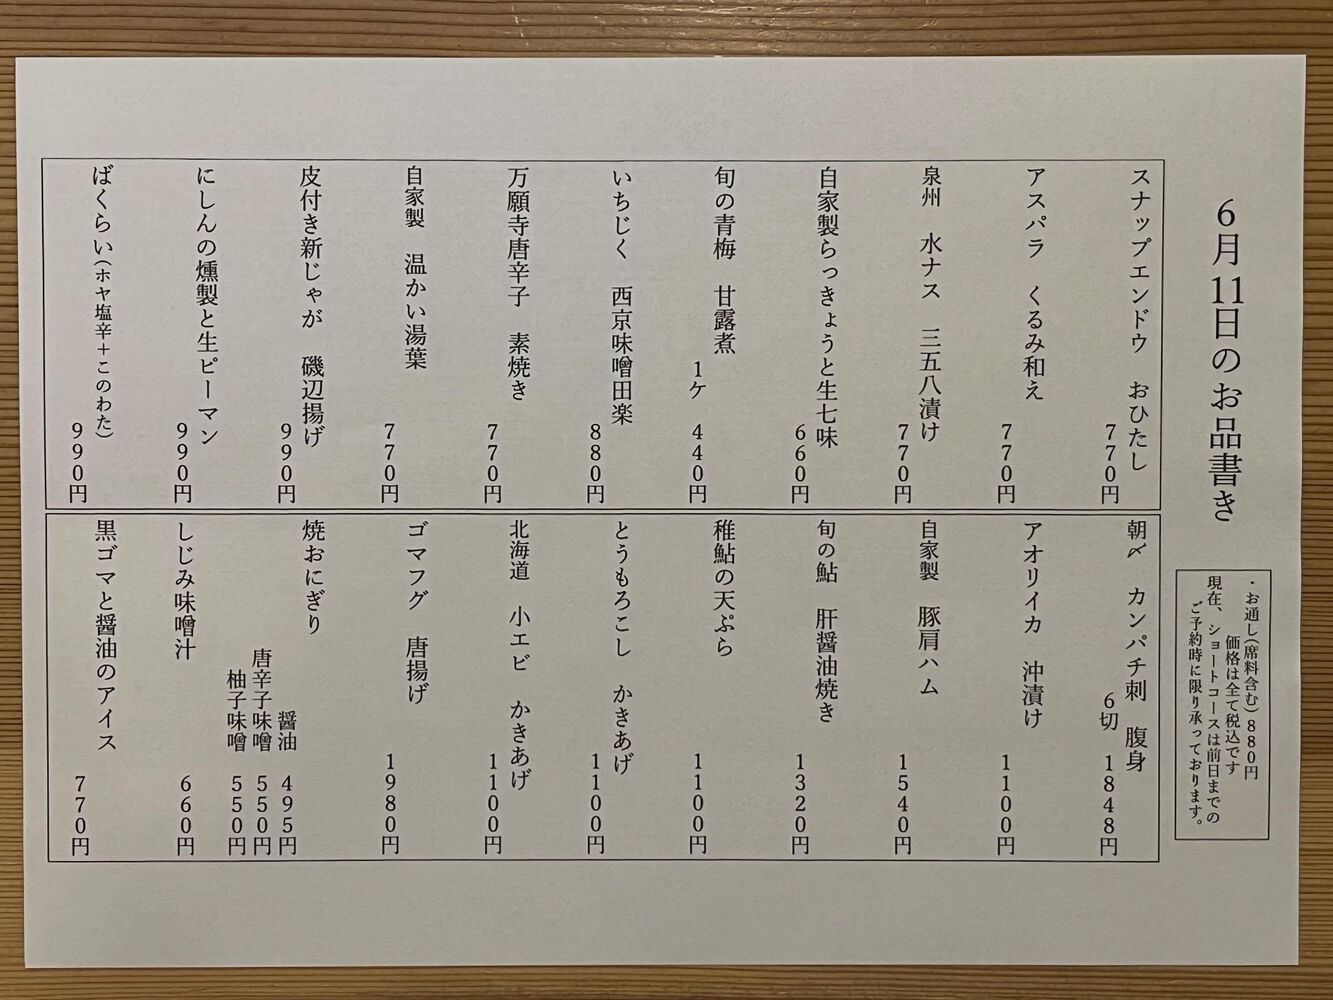 6月11日のお品書き
・お通し(席料含む)880円
価格は全て税込です
現在、ショートコースは前日までの
ご予約時に限り承っております。
スナップエンドウ　おひたし
770円
アスパラ　くるみ和え
770円
泉州　水ナス　三五八漬け
770円
自家製らっきょうと生七味
660円
旬の青梅　甘露煮
1ケ　440円
いちじく　西京味噌田楽
880円
万願寺唐辛子　素焼き
770円
自家製　温かい湯葉
770円
皮付き新じゃが　磯辺揚げ
990円
にしんの燻製と生ピーマン
990円
ばくらい(ホヤ塩辛+このわた)
990円
朝〆　カンパチ刺　腹身
6切　1848円
アオリイカ　沖漬け
1100円
自家製　豚肩ハム
1540円
旬の鮎　肝醤油焼き
1320円
稚鮎の天ぷら
1100円
とうもろこし　かきあげ
1100円
北海道　小エビ　かきあげ
1100円
ゴマフグ　唐揚げ
1980円
焼おにぎり
醤油　495円
唐辛子味噌　550円
柚子味噌　550円
しじみ味噌汁
660円
黒ゴマと醤油のアイス
770円